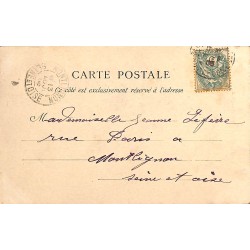 CARTE POSTALE
Ce côté est exclusivement réservé à l'adresse
Mademoiselle Jeanne Lefèvre
rue Paris a
Montlignon
Seine et oise